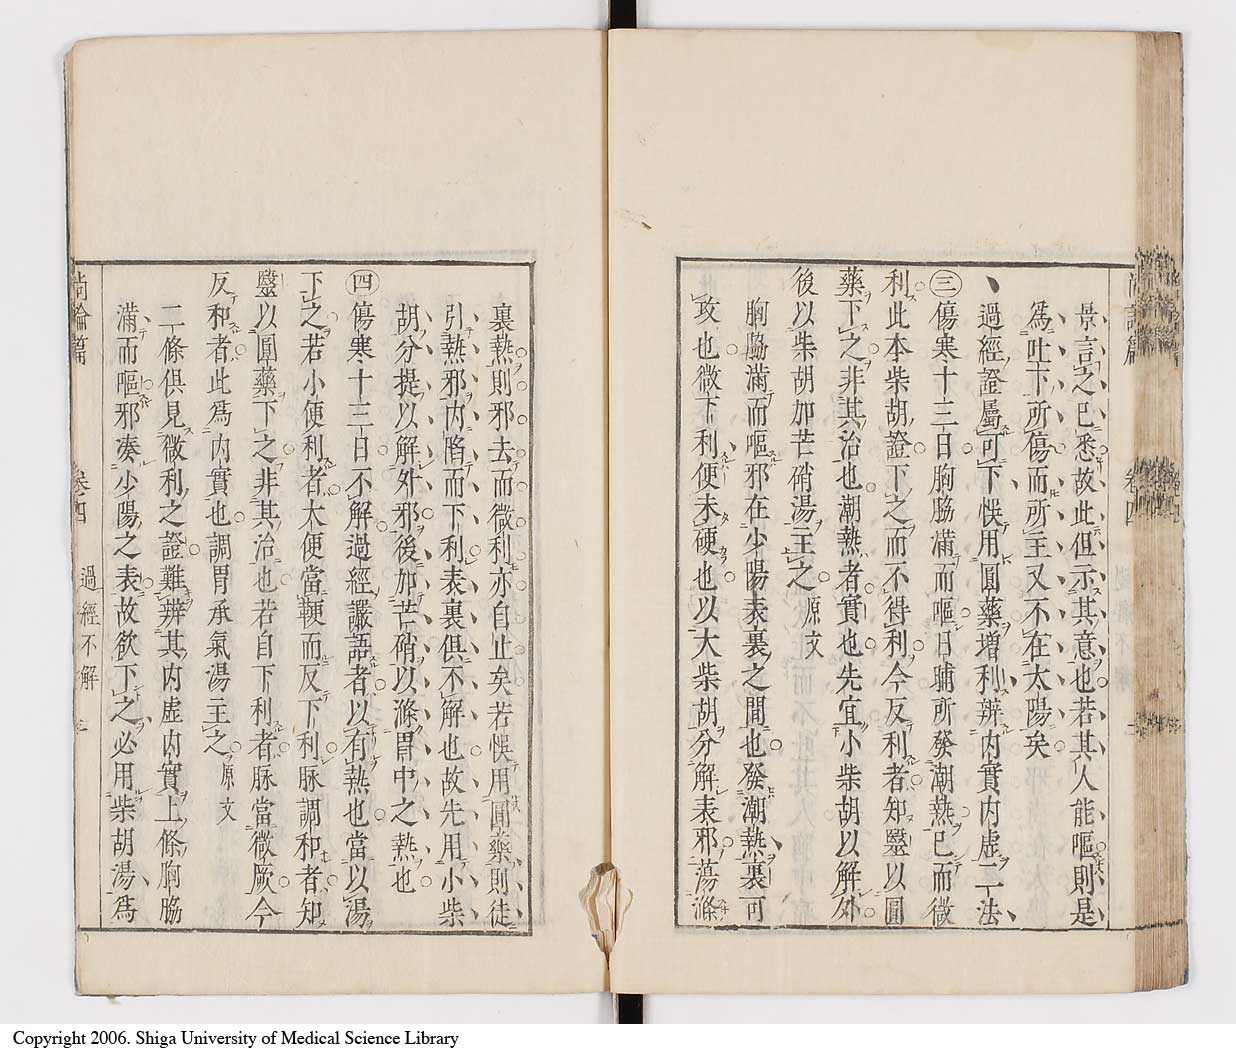 景言之已悉故此但示其意也若其人能嘔則是
爲吐下所傷而所主又不在太陽矣
過經證屬可下悞用圓藥增利辨内實内虚一法
㊂傷寒十三日胸脇滿而嘔日晡所發潮熱已而微
利此本柴胡證下之而不得利今反利者知毉以圓
藥下之非其治也潮熱者實也先宜小柴胡以解外
後以柴胡加芒硝湯主之原文
胸脇滿而嘔邪在少陽表裏之間也發潮熱裏可
攻也微下利便未硬也以大柴胡分解表邪蕩滌
裏熱則邪去而微利亦自止矣若悞用圓藥則徒
引熱邪内陷而下利表裏俱不解也故先用小柴
胡分提以解外邪後加芒硝以滌胃中之熱也
㊃傷寒十三日不解過經讝語者以有熱也當以湯
下之若小便利者大便當鞕而反下利脉調和者知
毉以圓藥下之非其治也若自下利者脉當微厥今
反和者此爲内實也調胃承氣湯主之原文
二條俱見微利之證難辨其内虚内實上條胸脇
滿而嘔邪湊少陽之表故欲下之必用柴胡湯爲
尚論篇 卷四 過經不解
Copyright 2006. Shiga University of Medical Science Library